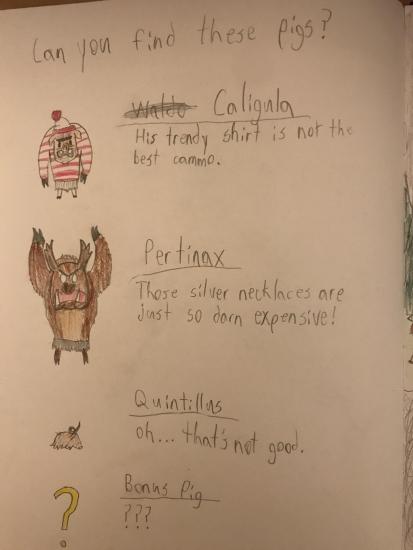 Can you find these pigs?
Waldo Caligula
His trendy shirt is not the
best cammo.
Pertinax
Those silver necklaces are
just so darn expensive!
Quintillus
oh... that's not good.
Bonus Pig
???
?